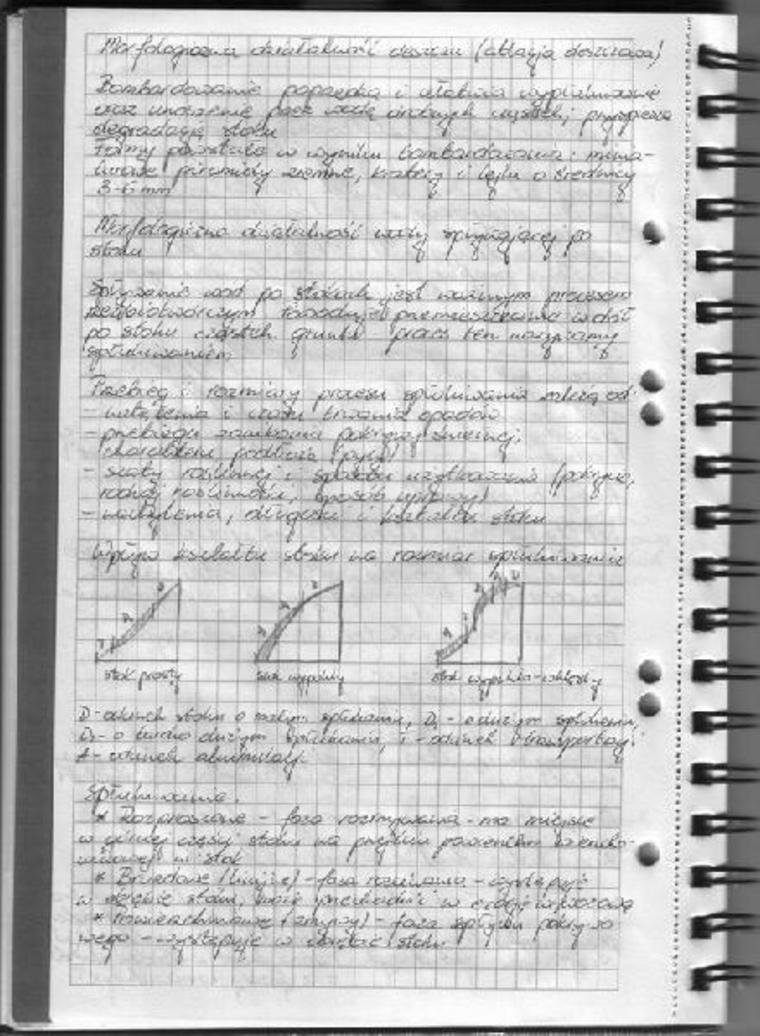 Morfologiczna działalność deszczu (ablacja deszczowa)
Bombardowanie poprzedza i ułatwia wypłukiwanie
oraz unoszenie przez wodę drobnych cząstek, przyspiesza
degradację stoku
Formy powstałe w wyniku bombardowania: minia-
turowe piramidy ziemne, kratery i lejki o średnicy
3-6 mm
Morfologiczna działalność wody spływającej po
stoku
Spływanie wód po stokach jest ważnym procesem
rzeźbotwórczym powoduje przemieszczanie w dół
po stoku cząstek gruntu proces ten nazywamy
spłukiwaniem
Przebieg i rozmiary procesu spłukiwania zależą od:
- natężenia i czasu trwania opadów
- przebiegu zanikania pokrywy śnieżnej,
charakteru podłoża
- szaty roślinnej i sposobu użytkowania (pokrycie,
rodzaj roślinności, sposób uprawy)
- nachylenia, długości i kształtu stoku
Wpływ kształtu stoku na rozmiar spłukiwania
stok prosty
stok wypukły
stok wypukło-wklęsły
D - odcinek stoku o małym spłukaniu, D₁ - o dużym spłukaniu,
D₂ - o bardzo dużym spłukaniu, T - odcinek transportacji
A - odcinek akumulacji
Spłukiwanie.
* Rozproszone - faza rozmywania - ma miejsce
w górnej części stoku na przejściu powierzchni
w stok
* Bruzdowe (linijne) - faza - występuje
w stoku, może przechodzić w erozję wąwozową
* Powierzchniowe (zmywy) - faza spływu pokrywo
wego - występuje w stoku